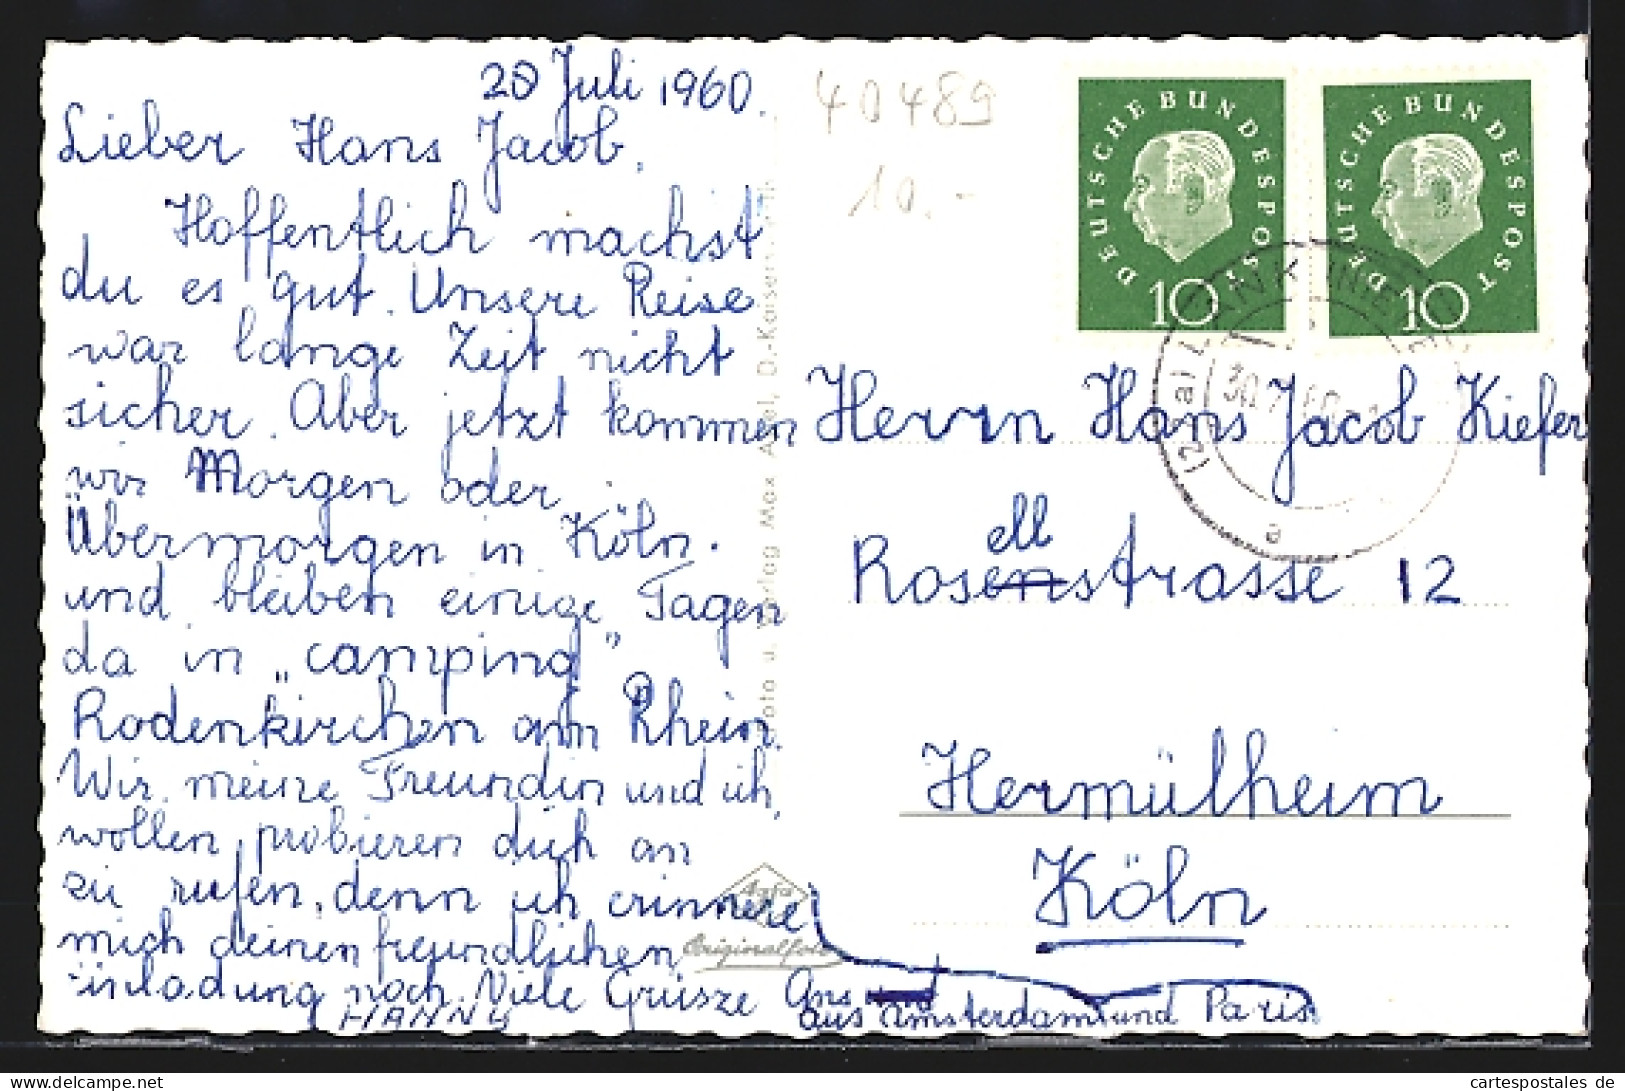 28 Juli 1960.
Lieber Hans Jacob,
Hoffentlich machst
du es gut. Unsere Reise
war lange Zeit nicht
sicher. Aber jetzt kommen
wir Morgen oder
Übermorgen in Köln.
und bleiben einige Tagen
da in „camping"
Rodenkirchen am Rhein.
Wir, meine Freundin und ich,
wollen probieren dich an
zu rufen, denn ich erinnere
mich deinen freundlischen
Einladung noch. Viele Grüsze Ans
HANNY
aus Amsterdam und Paris.
40489
10.-
DEUTSCHE BUNDESPOST
10
DEUTSCHE BUNDESPOST
10
30.7.60
a
Herrn Hans Jacob Kiefer
ell
Rosenstrasse 12
Hermülheim
Köln
Foto u. Verlag Max Apel, D.-Kaiserswerth
Agfa
Originalfoto
cartespostales.de